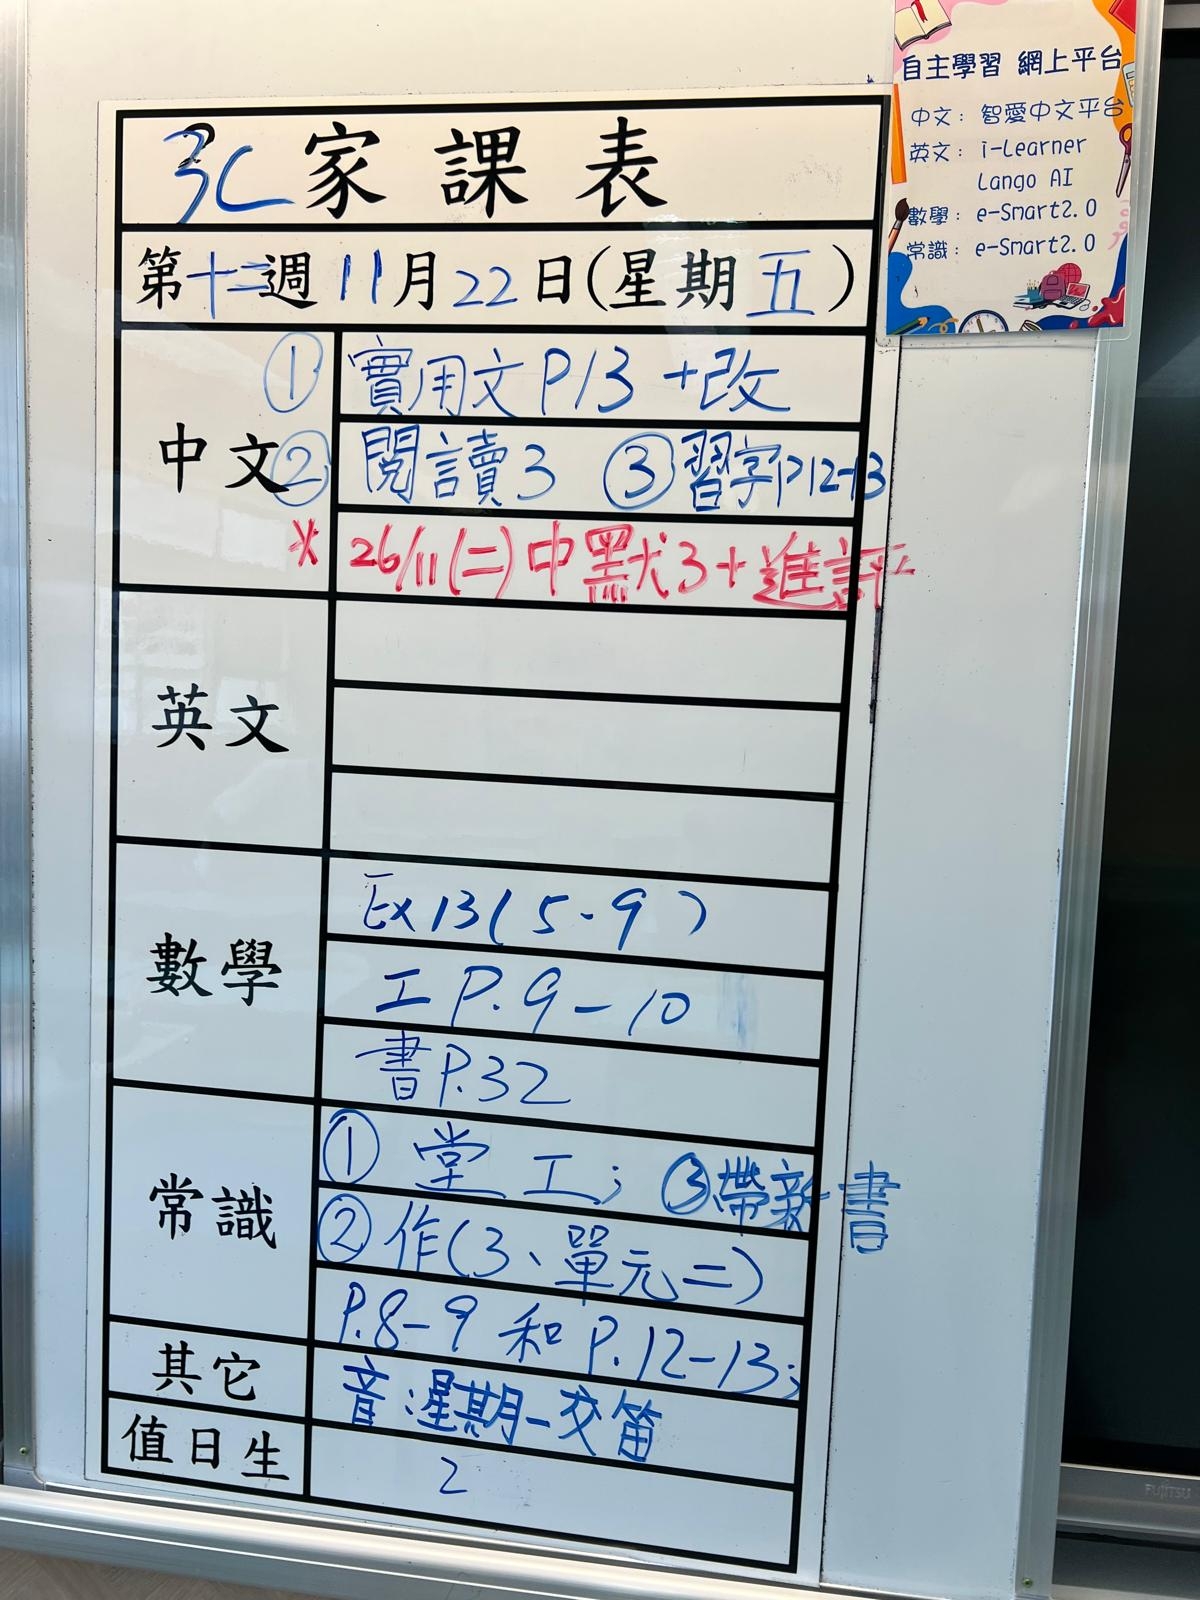 自主學習 網上平台
中文：智愛中文平台
英文：i-Learner
Lango AI
數學：e-Smart2.0
常識：e-Smart2.0
3C 家課表
第十二週 11月22日(星期五)
中文
① 實用文P13 +改
② 閱讀3 ③習字P12-13
* 26/11(二)中默3+進評
英文
數學
Ex13(5-9)
工P.9-10
書P.32
常識
① 堂工; ③帶新書
② 作(3、單元二)
P.8-9 和 P.12-13;
其它
音:星期一交笛
值日生
2
FUJITSU